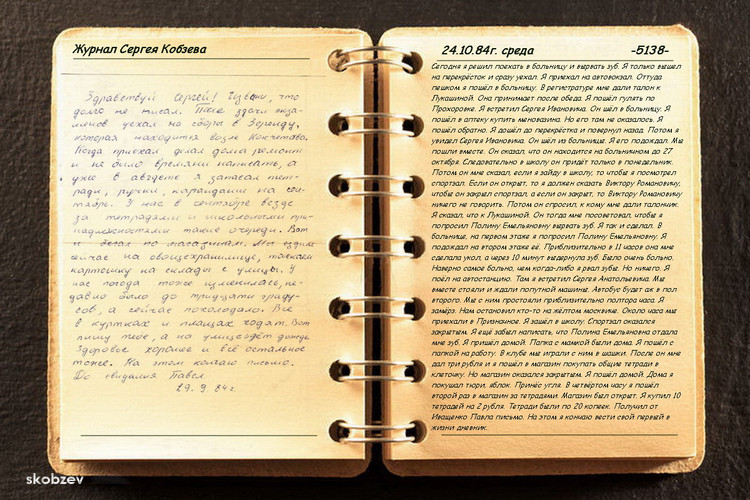 Журнал Сергея Кобзева
Здравствуй Сергей! Извини, что
долго не писал. После сдачи экза-
менов уехал на сборы в Зеренду,
которая находится возле Кокчетава.
Когда приехал делал дома ремонт
и не было времени написать, а
уже в августе я запасал тет-
ради, ручки, карандаши на сен-
тябрь. У нас в сентябре везде
за тетрадями и школьными при-
надлежностями такие очереди. Вот
и бегал по магазинам. Мы ездим
сейчас на овощехранилище, таскаем
картошку на склады с улицы. У
нас погода тоже изменилась, не-
давно было до тридцати граду-
сов, а сейчас похолодало. Все
в куртках и плащах ходят. Вот
пишу тебе, а на улице идёт дождь.
Здоровье хорошее и всё остальное
тоже. На этом кончаю письмо.
До свидания Павел.
29.9.84г.
24.10.84г. среда -5138-
Сегодня я решил поехать в больницу и вырвать зуб. Я только вышел
на перекрёсток и сразу уехал. Я приехал на автовокзал. Оттуда
пешком я пошёл в больницу. В регистратуре мне дали талон к
Лукашиной. Она принимает после обеда. Я пошёл гулять по
Прохоровке. Я встретил Сергея Ивановича. Он шёл в больницу. Я
пошёл в аптеку купить меновазина. Но его там не оказалось. Я
пошёл обратно. Я дошёл до перекрёстка и повернул назад. Потом я
увидел Сергея Ивановича. Он шёл из больницы. Я его подождал. Мы
пошли вместе. Он сказал, что он находится на больничном до 27
октября. Следовательно в школу он придёт только в понедельник.
Потом он мне сказал, если я зайду в школу, то чтобы я посмотрел
спортзал. Если он открыт, то я должен сказать Виктору Романовичу,
чтобы он закрыл спортзал, а если он закрыт, то Виктору Романовичу
ничего не говорить. Потом он спросил, к кому мне дали талончик.
Я сказал, что к Лукашиной. Он тогда мне посоветовал, чтобы я
попросил Полину Емельяновну вырвать зуб. Я так и сделал. В
больнице, на первом этаже я попросил Полину Емельяновну. Я
подождал на втором этаже её. Приблизительно в 11 часов она мне
сделала укол, а через 10 минут выдернула зуб. Было очень больно.
Наверно самое больно, чем когда-либо я рвал зубы. Но ничего. Я
поёл на автостанцию. Там я встретил Сергея Анатольевича. Мы
вместе стояли и ждали попутной машине. Автобус будет аж в пол
второго. Мы с ним простояли приблизительно полтора часа. Я
замёрз. Нам остановил кто-то на жёлтом москвиче. Около часа мы
приехали в Призначное. Я зашёл в школу. Спортзал оказался
закрытым. Я ещё забыл написать, что Полина Емельяновна отдала
мне зуб. Я пришёл домой. Папка с мамкой были дома. Я пошёл с
папкой на работу. В клубе мы играли с ним в шашки. После он мне
дал три рубля и я пошёл в магазин покупать общие тетради в
клеточку. Но магазин оказался закрытым. Я пошёл домой. Дома я
покушал тюри, яблок. Принёс угля. В четвёртом часу я пошёл
второй раз в магазин за тетрадями. Магазин был открыт. Я купил 10
тетрадей на 2 рубля. Тетради были по 20 копеек. Получил от
Иващенко Павла письмо. На этом я кончаю вести свой первый в
жизни дневник.
skobzev